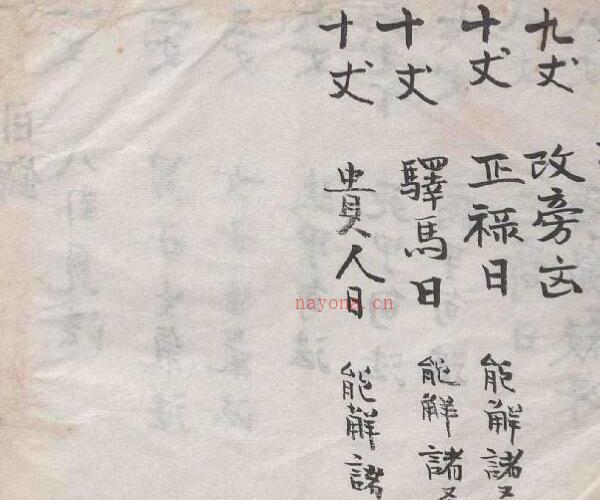 九丈 改旁凶
十丈 正祿日 能解諸
十丈 驛馬日 能解諸
十丈 貴人日 能解諸
nayona.cn